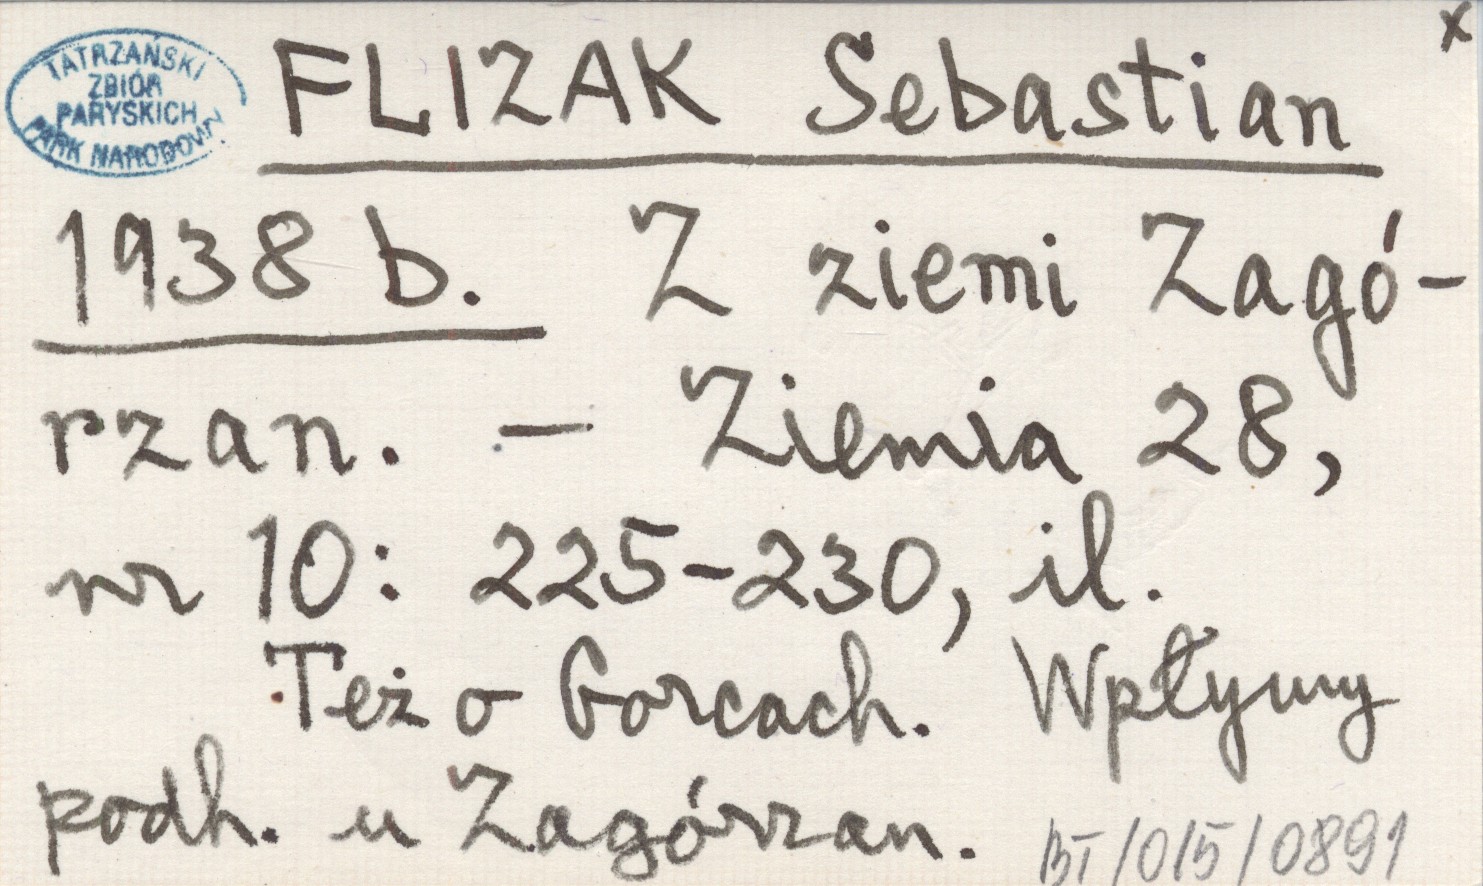 x
TATRZAŃSKI
ZBIÓR
PARYSKICH
PARK NARODOWY
FLIZAK Sebastian
1938 b. Z ziemi Zagó-
rzan. - Ziemia 28,
nr 10: 225-230, il.
Też o Gorcach. Wpływy
podh. u Zagórzan.
BT/015/0891